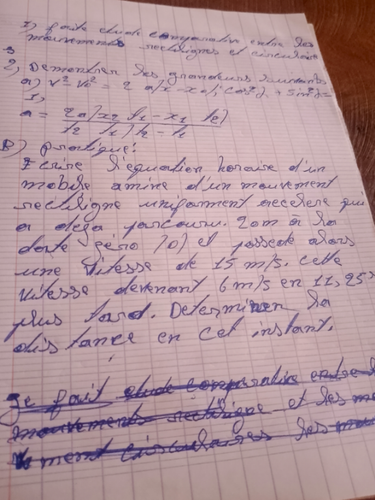 1) faite etude comparative entre les
mouvements rectilignes et circulaire
2) Demontrer les grandeurs suivantes
a) V² - V0² = 2 a(x - x0)
a = 2a(x2 t1 - x1 t2)
t2 t1) t2 - t1
B) pratique:
Ecrire l'equation horaire d'un
mobile animé d'un mouvement
rectiligne uniforment acceleré qui
a deja parcouru 20m à la
date zéro (0) et possede alors
une vitesse de 15 m/s. cette
vitesse devenant 6 m/s en 11,25s
plus tard. Determinen la
distance en cet instant.
Je fait etude comparative entre
mouvements rectiligne et les
ment circulaires les